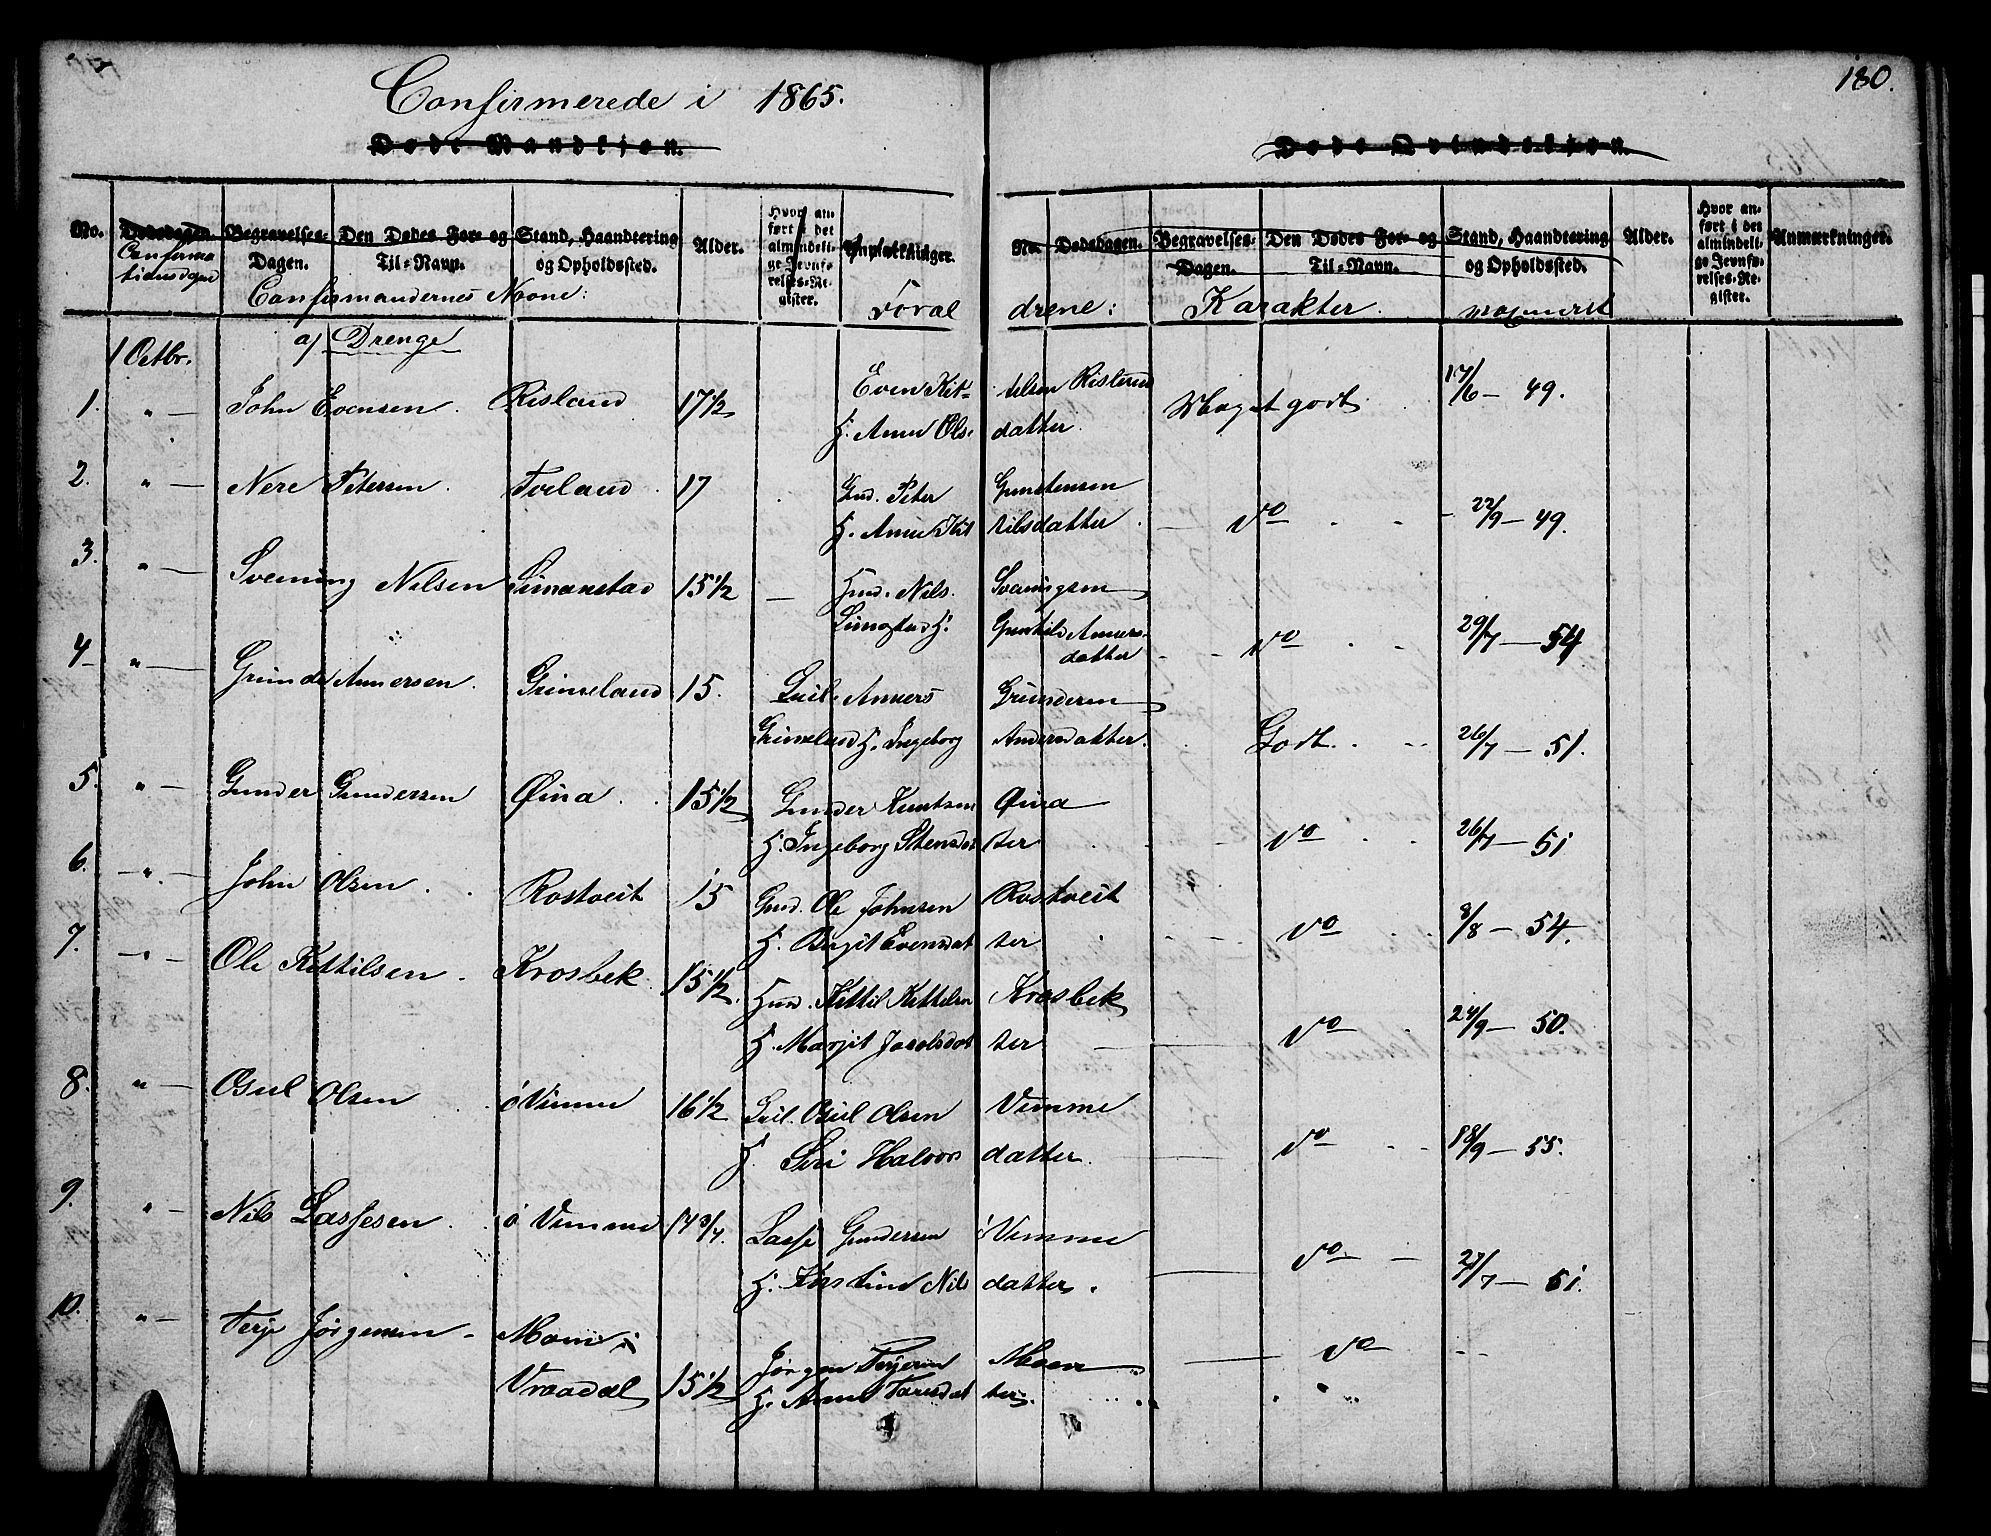 180.
Confirmerede i 1865.
Døde Mandkjøn. Døde Qvindekjøn.
No. Dødsdagen. Begravelses-Dagen. Den Dødes For- og Til-Navn. Stand, Haandtering og Opholdssted. Alder. Hvor anført i det almindelige Jevnførelses-Register. Anmærkninger.
No. Dødsdagen. Begravelses-Dagen. Den Dødes For- og Til-Navn. Stand, Haandtering og Opholdssted. Alder. Hvor anført i det almindelige Jevnførelses-Register. Anmærkninger.
Confirmationsdagene Confirmandernes Navne: Forældrene: Karakter. vaccineret
1 Octbr. a) Drenge
1. " — John Evensen. Risland 17 1/2 Even Kittelsen Risland Meget godt 17/6 — 49.
H. Anne Olsdatter.
2. " — Nere Petersen. Tveland. 17 Gmd. Peter Gunstensen
H. Anne Kittilsdatter. — do — 22/9 — 49.
3. " — Svenning Nilsen Simonstad 15 1/2 — Gmd. Nils Svenningsen
Simonstad H. Gunhild Anners-
datter — do 29/7 — 54
4 — " — Grunde Annersen. Grimeland 15. Leil. Anners Grundesen
Grimeland H. Ingeborg Andersdatter. Godt. 26/7 — 51.
5. " — Gunder Gundersen Øina. 15 1/2 Gunder Knutsen Øina
H. Ingeborg Stensdatter do 26/7 — 51
6. — " — John Olsen. Rostveit 15 Gmd. Ole Johnsen Rostveit
H. Birgit Evensdatter — do 8/8 — 54.
7. — " — Ole Kittilsen. Krosbek. 15 1/2. Gmd. Kittil Kittelsen Krosbek
H. Margit Jacobsdatter — do 24/9 — 50.
8. " — Osul Olsen ö Vimme 16 1/2 Leil. Osul Olsen Vimme
H. Siri Halvorsdatter. — do 18/9 — 55.
9. " — Nils Lassesen. ö Vimme 14 3/4. Lasse Gundersen ö Vimme
H. Kirstine Nilsdatter. — do — 27/7 — 51.
10. " — Terje Jörgensen — Moen i Jörgen Terjesen Moen — do --
Vraadal 15 1/2 H. Anne Taresdatter.